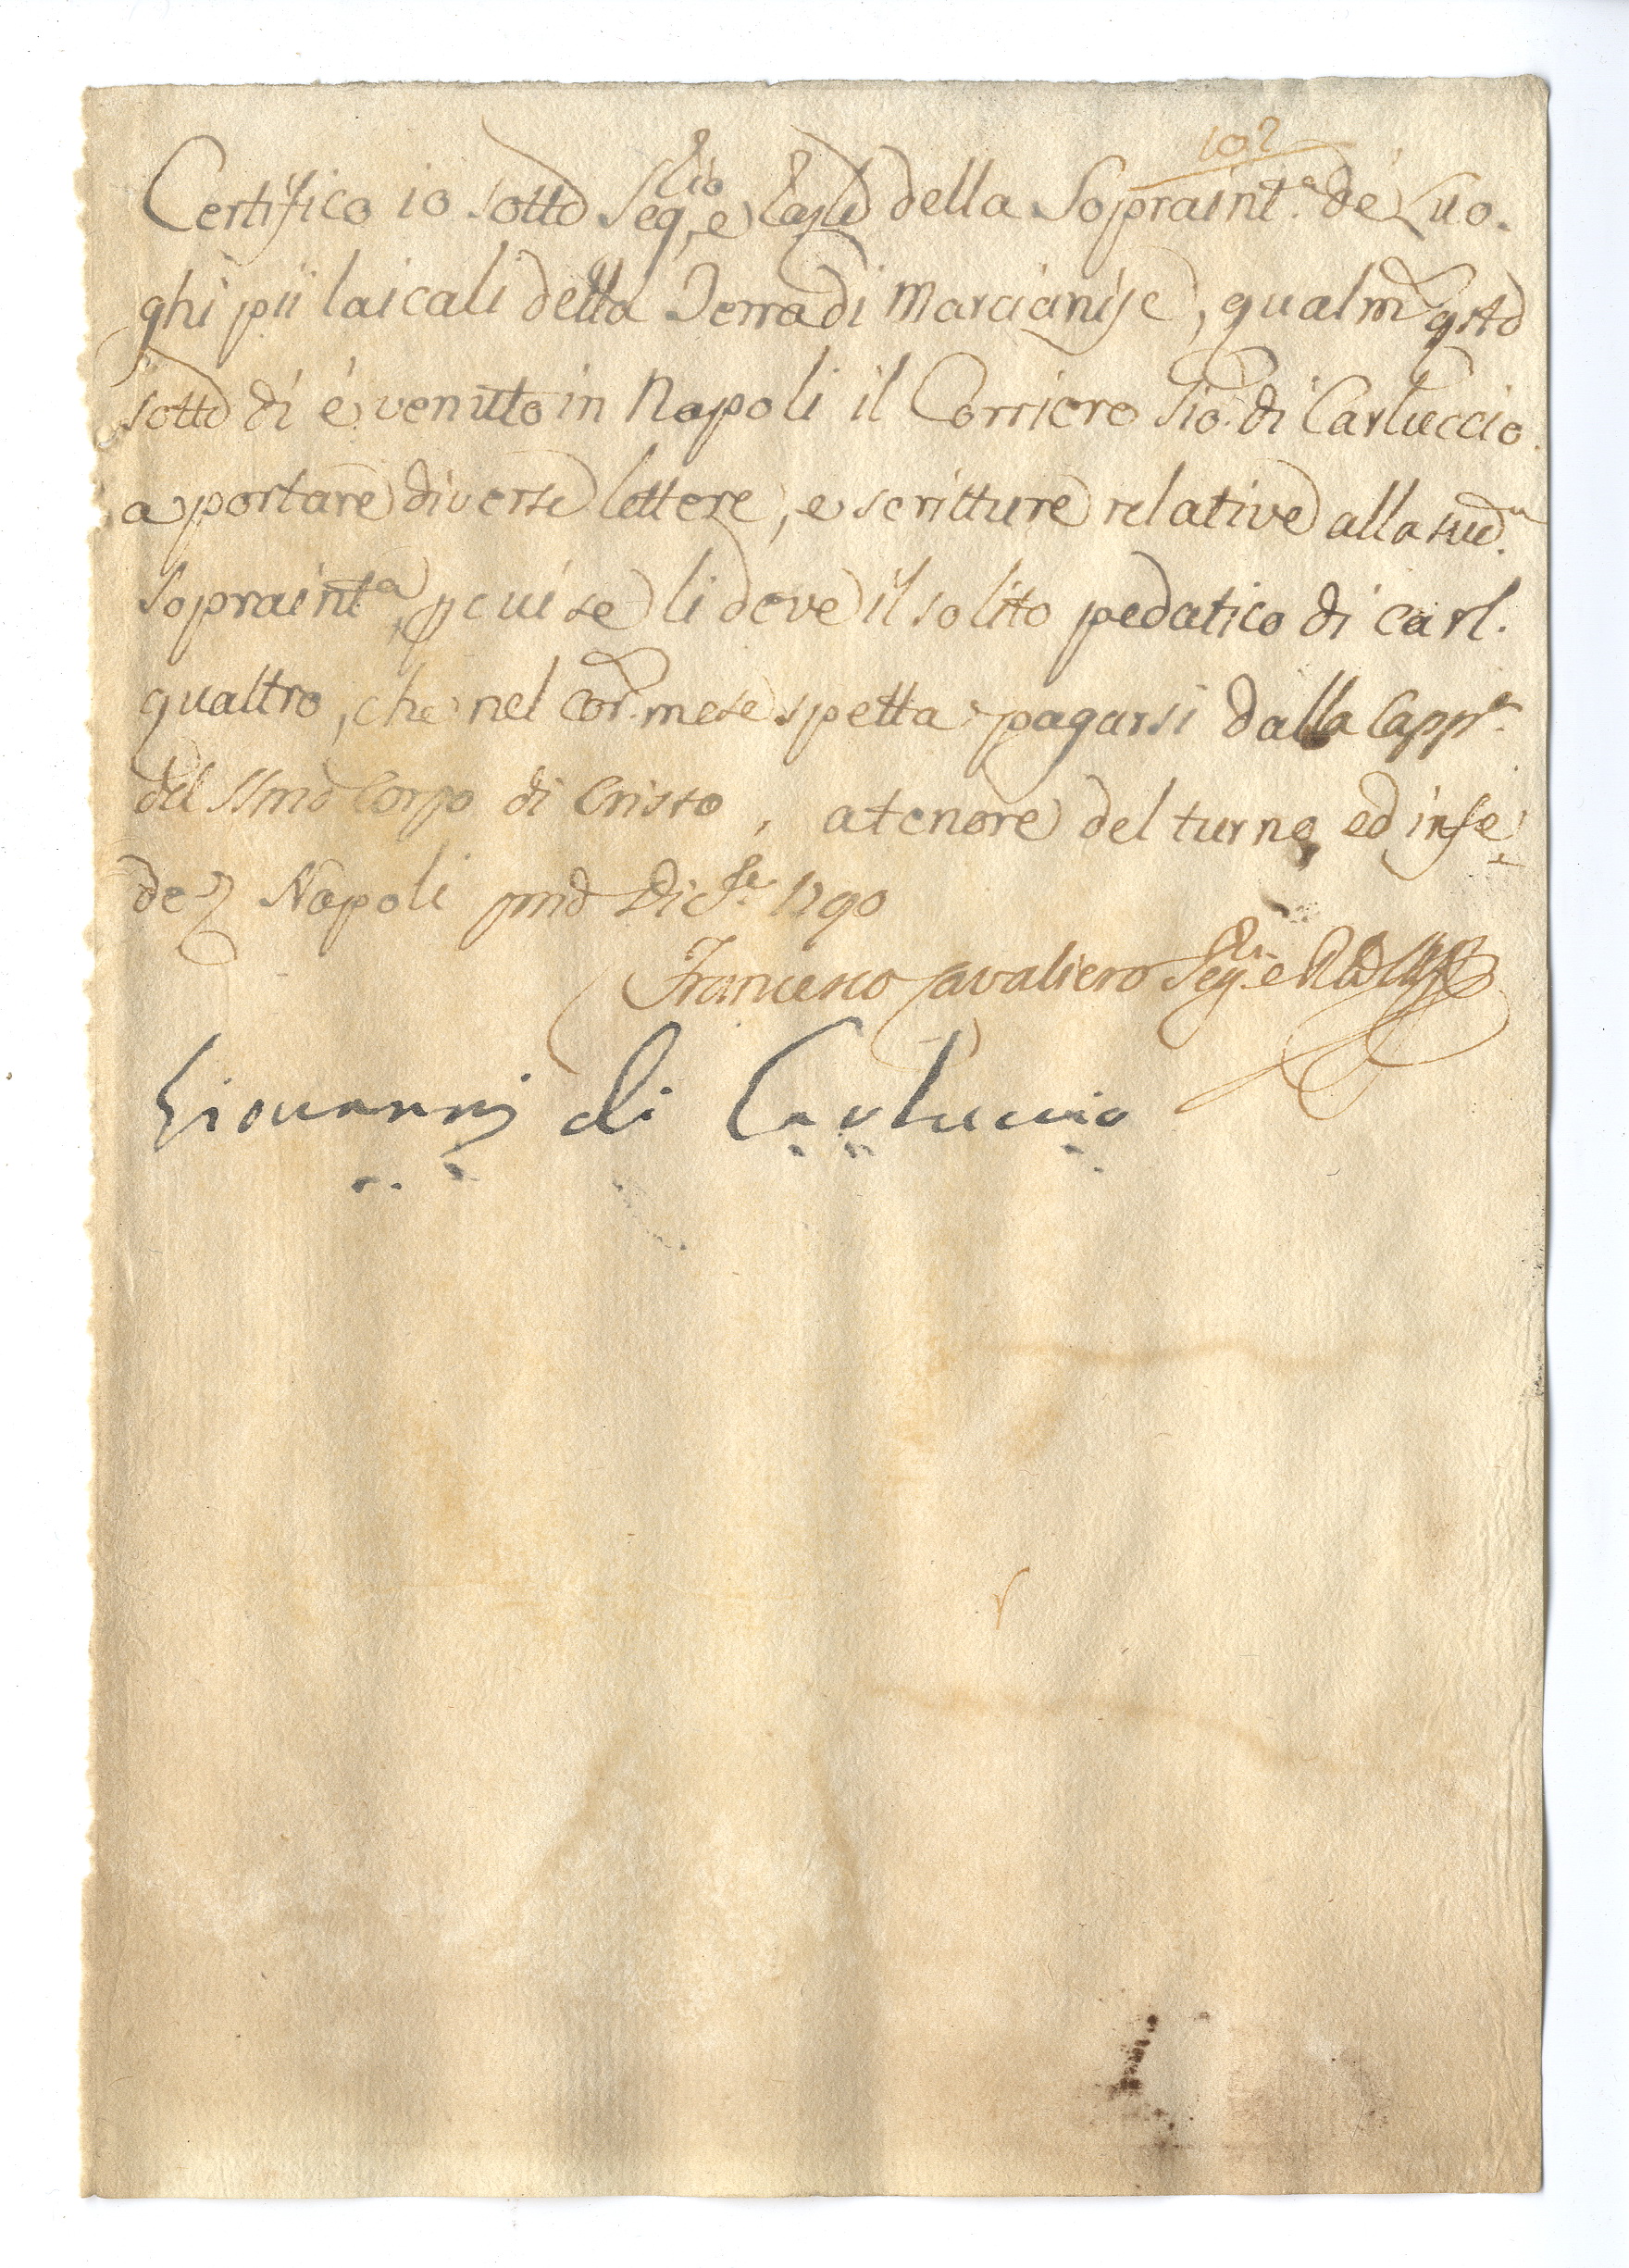 102
Certifico io sotto Seg.rio, e della Sopraint.a de' Luo-
ghi pii laicali della Terra di Marcianise, qualm.
sotto dì è venuto in Napoli il Corriere Gio: di Carluccio
a portare diverse lettere, e scritture relative alla sud.a
Sopraint.a, p cui se li deve il solito pedatico di carl.
quattro, che nel cor. mese spetta pagarsi dalla Capp.a
del SSmo Corpo di Cristo, a tenore del turno, ed in fe-
de Napoli pmo Dic.re 1790
Francesco Cavaliero Seg.rio e
Giovanni di Carluccio